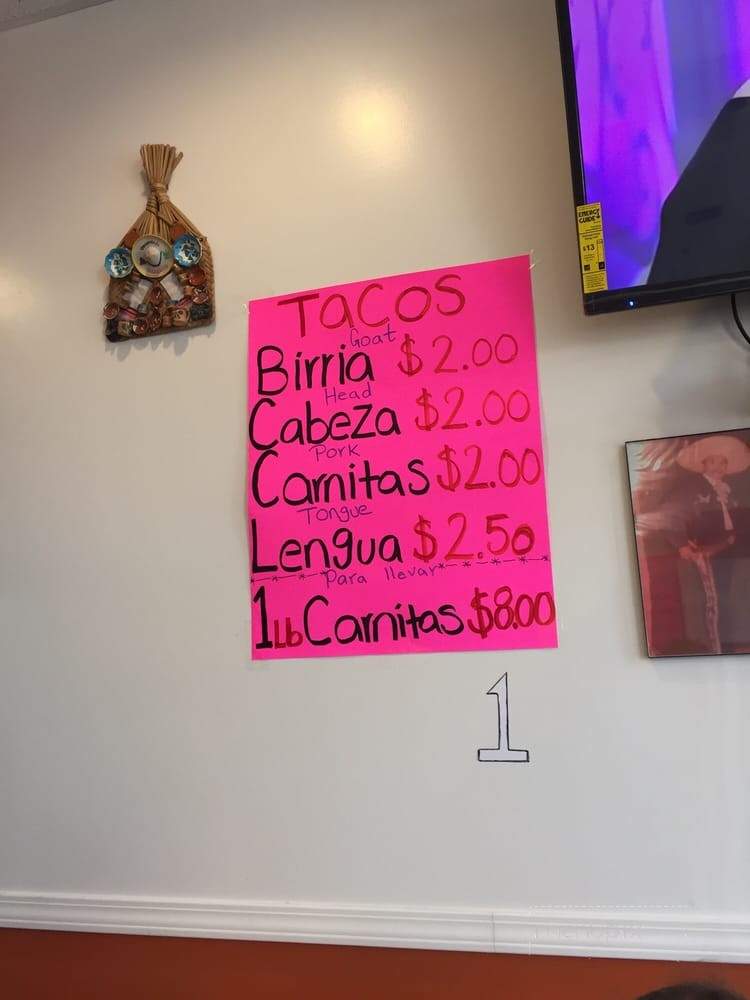 TACOS
Goat
Birria $2.00
Head
Cabeza $2.00
Pork
Carnitas $2.00
Tongue
Lengua $2.50
Para llevar
1Lb Carnitas $8.00
1
ENERGY
GUIDE
$13